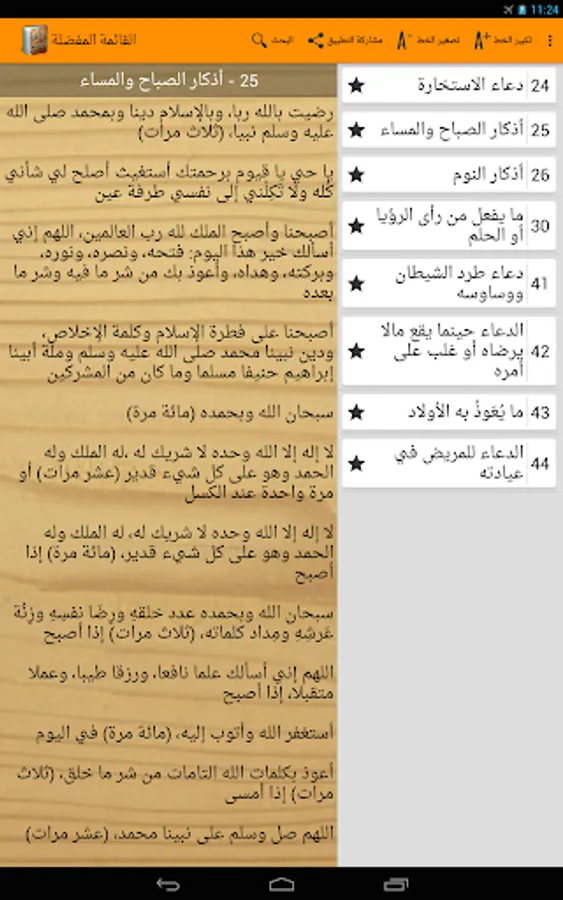 11:24
القائمة المفضلة
البحث
مشاركة التطبيق
تصغير الخط
تكبير الخط
25 - أذكار الصباح والمساء
رضيت بالله ربا، وبالإسلام دينا وبمحمد صلى الله
عليه وسلم نبيا، (ثلاث مرات)
يا حي يا قيوم برحمتك أستغيث أصلح لي شأني
كُله ولا تَكِلْني إلى نفسي طرفة عين
أصبحنا وأصبح الملك لله رب العالمين، اللهم إني
أسألك خير هذا اليوم: فتحه، ونصره، ونوره،
وبركته، وهداه، وأعوذ بك من شر ما فيه وشر ما
بعده
أصبحنا على فطرة الإسلام وكلمة الإخلاص،
ودين نبينا محمد صلى الله عليه وسلم وملة أبينا
إبراهيم حنيفا مسلما وما كان من المشركين
سبحان الله وبحمده (مائة مرة)
لا إله إلا الله وحده لا شريك له ،له الملك وله
الحمد وهو على كل شيء قدير (عشر مرات) أو
مرة واحدة عند الكسل
لا إله إلا الله وحده لا شريك له، له الملك وله
الحمد وهو على كل شيء قدير، (مائة مرة) إذا
أصبح
سبحان الله وبحمده عدد خلقهِ ورِضَا نفسِهِ وزِنُة
عَرشِهِ ومِداد كلماته، (ثلاث مرات) إذا أصبح
اللهم إني أسألك علما نافعا، ورزقا طيبا، وعملا
متقبلا، إذا أصبح
أستغفر الله وأتوب إليه، (مائة مرة) في اليوم
أعوذ بكلمات الله التامات من شر ما خلق، (ثلاث
مرات) إذا أمسى
اللهم صل وسلم على نبينا محمد، (عشر مرات)
24 دعاء الاستخارة
25 أذكار الصباح والمساء
26 أذكار النوم
30 ما يفعل من رأى الرؤيا
أو الحلم
41 دعاء طرد الشيطان
ووساوسه
42 الدعاء حينما يقع مالا
يرضاه أو غلب على
أمره
43 ما يُعَوذُ به الأولاد
44 الدعاء للمريض في
عيادته